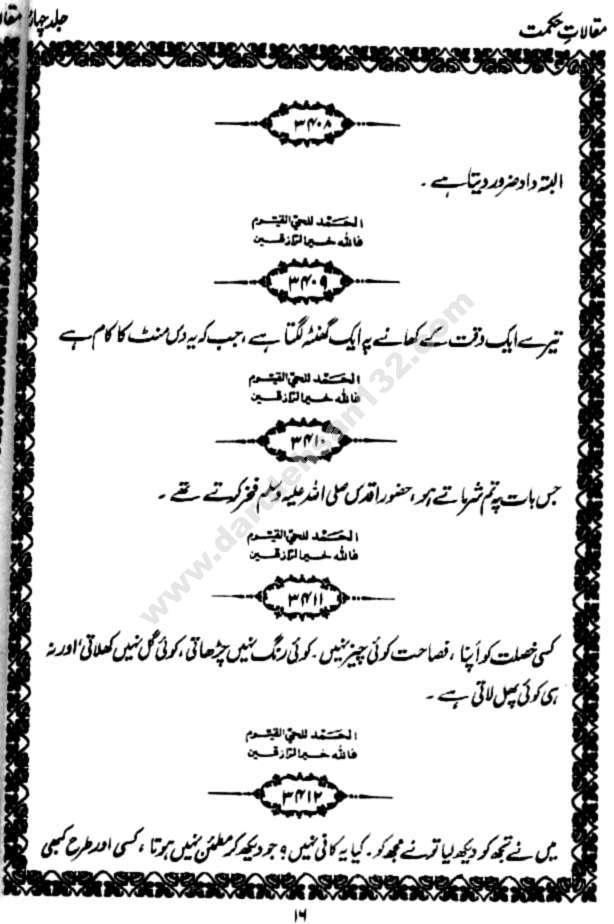 مقالاتِ حکمت
جلد چہار
مقا
۳۴۰۸
البتہ داد ضرور دیتا ہے ۔
الحَمد للحیّ القیّوم
فاللہ خیرالرّازقین
۳۴۰۹
تیرے ایک وقت کے کھانے پہ ایک گھنٹہ لگتا ہے ، جب کہ یہ دس منٹ کا کام ہے
الحَمد للحیّ القیّوم
فاللہ خیرالرّازقین
۳۴۱۰
جس بات پہ تم شرماتے ہو ، حضور اقدس صلی اللہ علیہ وسلم فخر کرتے تھے ۔
الحَمد للحیّ القیّوم
فاللہ خیرالرّازقین
۳۴۱۱
کسی خصلت کو اَپنا ، فصاحت کوئی چیز نہیں ۔ کوئی رنگ نہیں چڑھاتی ، کوئی گل نہیں کھلاتی ، اور نہ
ہی کوئی پھل لاتی ہے ۔
الحَمد للحیّ القیّوم
فاللہ خیرالرّازقین
۳۴۱۲
میں نے تجھ کو دیکھ لیا تو نے مجھ کو ۔ کیا یہ کافی نہیں ؟ جو دیکھ کر مطمئن نہیں ہوتا ، کسی اور طرح کبھی
۱۶